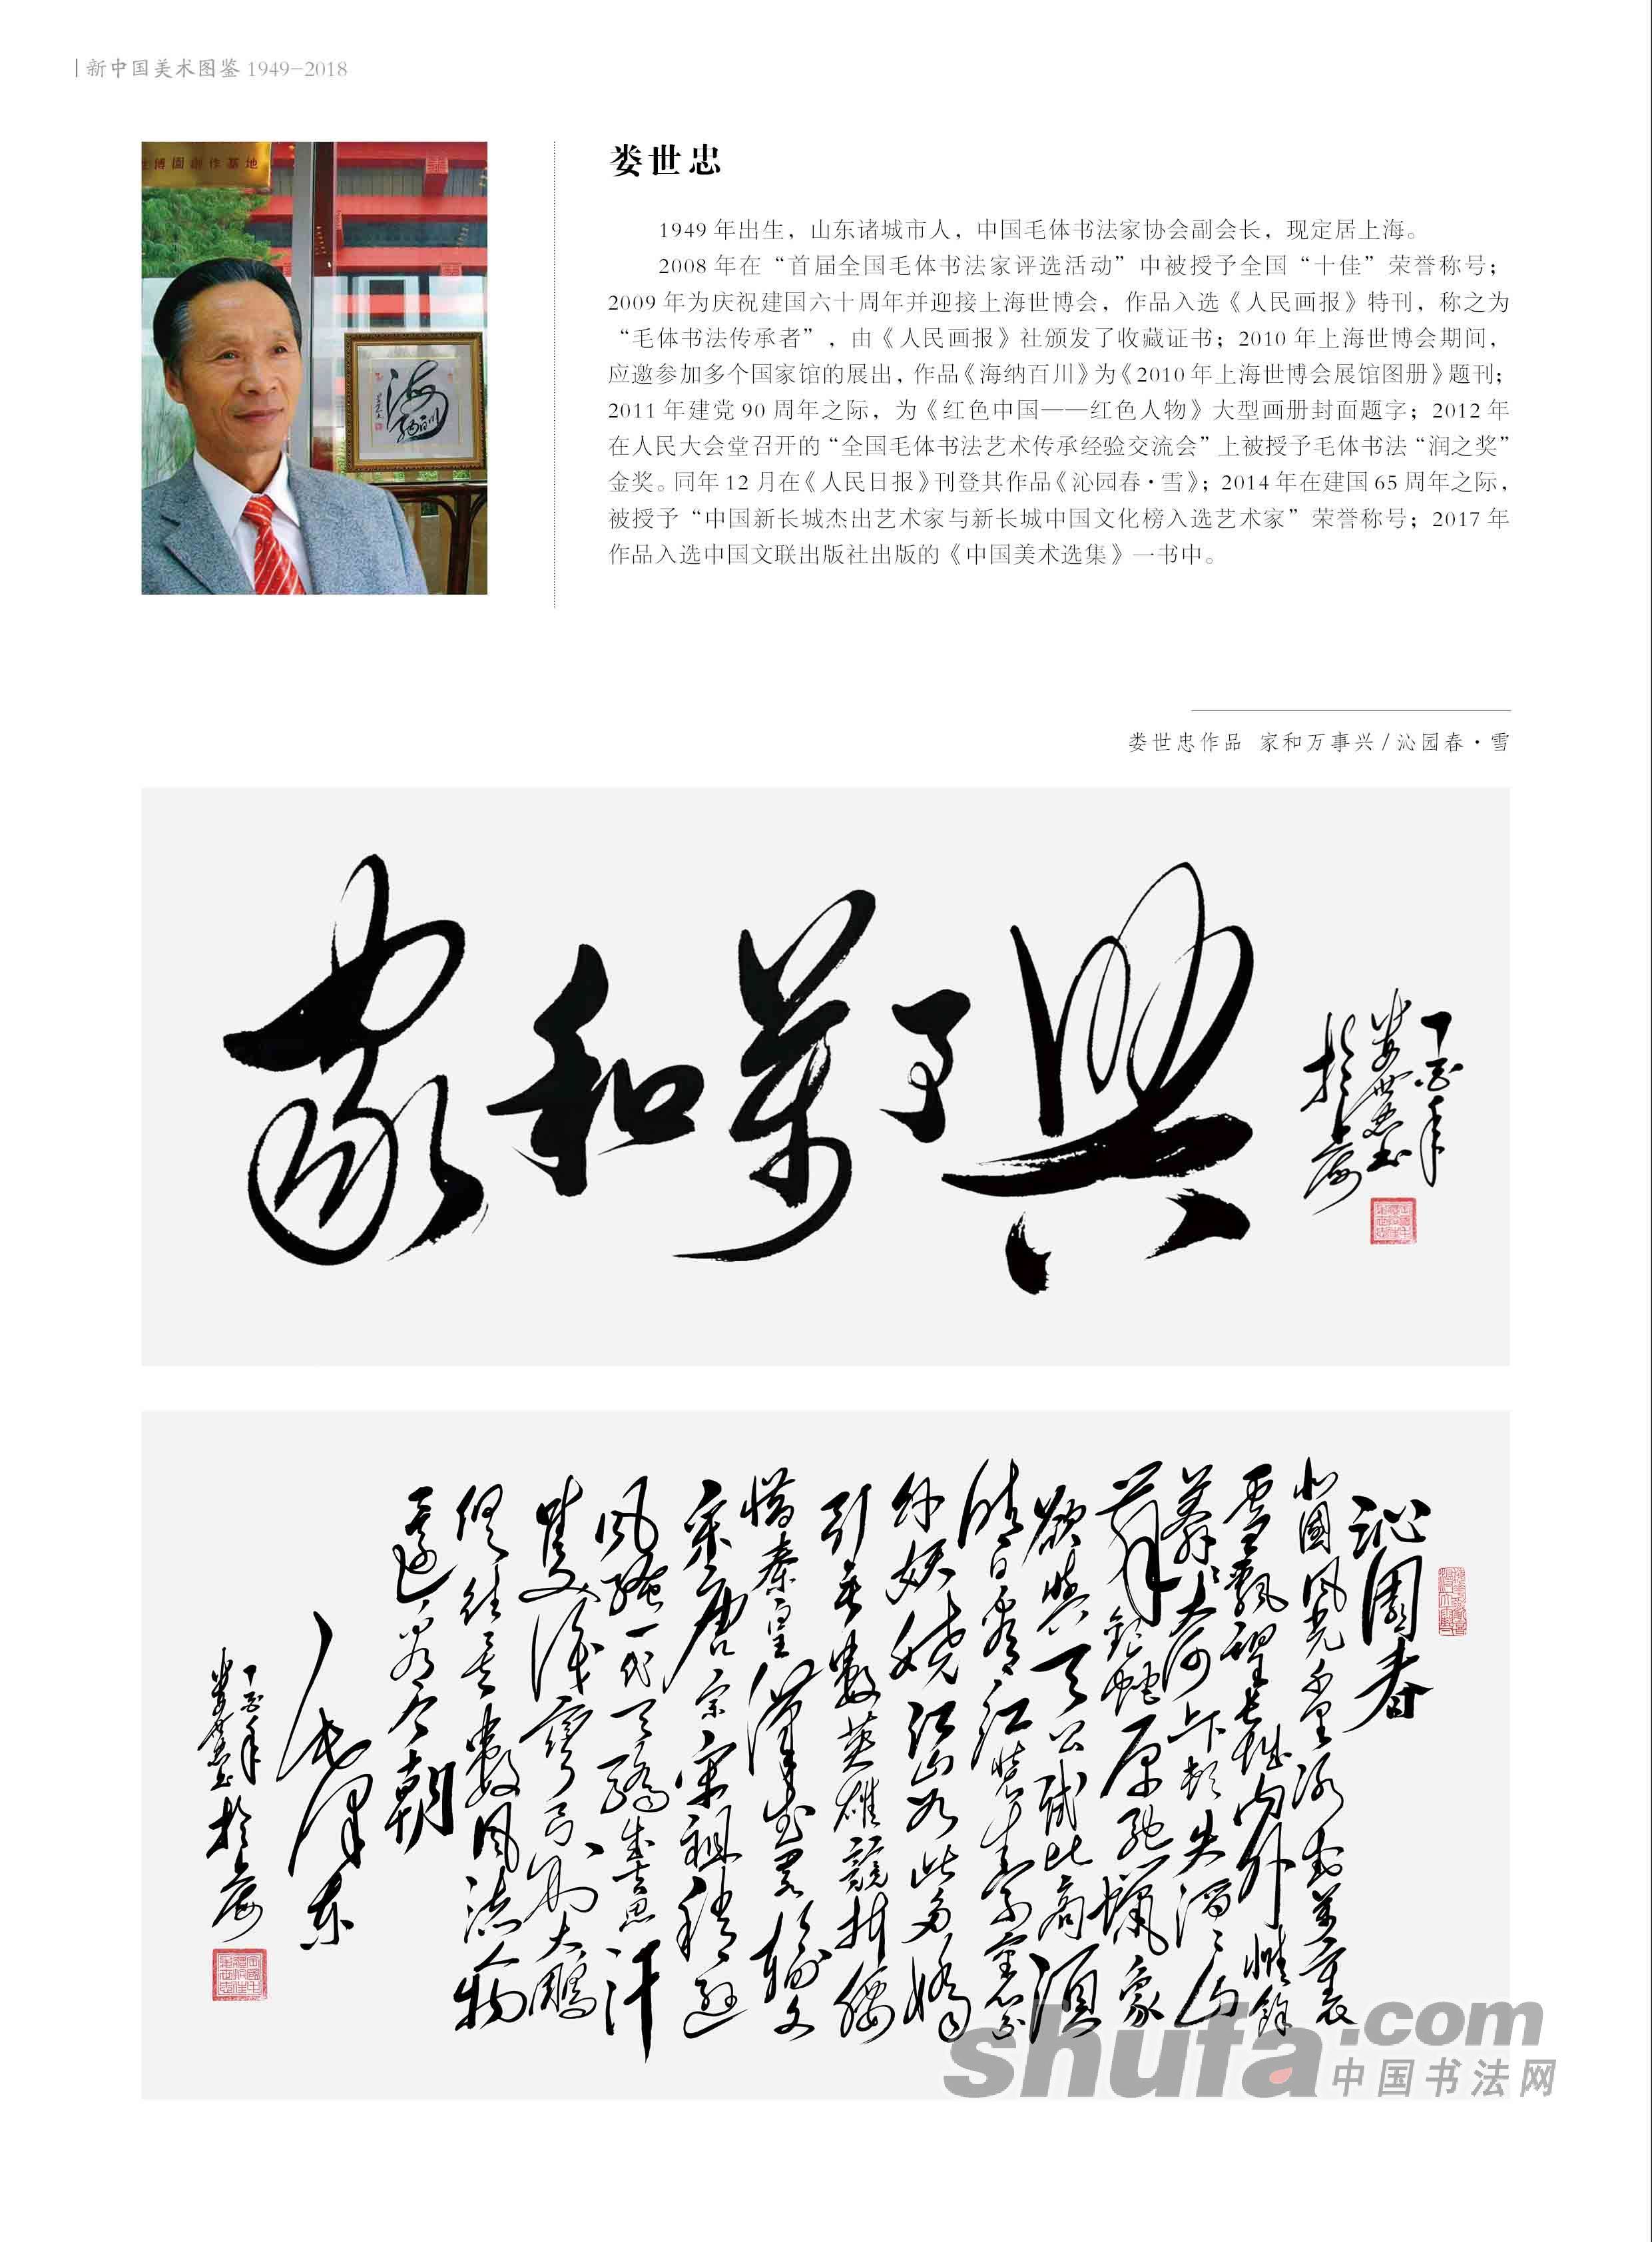 新中国美术图鉴 1949-2018
世博園創作基地
娄世忠
1949 年出生，山东诸城市人，中国毛体书法家协会副会长，现定居上海。
2008 年在“首届全国毛体书法家评选活动”中被授予全国“十佳”荣誉称号；
2009 年为庆祝建国六十周年并迎接上海世博会，作品入选《人民画报》特刊，称之为
“毛体书法传承者”，由《人民画报》社颁发了收藏证书；2010 年上海世博会期间，
应邀参加多个国家馆的展出，作品《海纳百川》为《2010 年上海世博会展馆图册》题刊；
2011 年建党 90 周年之际，为《红色中国——红色人物》大型画册封面题字；2012 年
在人民大会堂召开的“全国毛体书法艺术传承经验交流会”上被授予毛体书法“润之奖”
金奖。同年 12 月在《人民日报》刊登其作品《沁园春·雪》；2014 年在建国 65 周年之际，
被授予“中国新长城杰出艺术家与新长城中国文化榜入选艺术家”荣誉称号；2017 年
作品入选中国文联出版社出版的《中国美术选集》一书中。
娄世忠作品 家和万事兴 / 沁园春·雪
家和萬事興
丁酉年
娄世忠书
於上海
沁園春
北國風光千里冰封萬里
雪飄望長城内外惟餘
莽莽大河上下頓失滔滔山
舞銀蛇原馳蠟象
欲與天公試比高須
晴日看紅裝素裹
分外妖嬈江山如此多嬌
引無數英雄競折腰
惜秦皇漢武略輸文
采唐宗宋祖稍遜
風騷一代天驕成吉思汗
隻识彎弓射大鵬
俱往矣數風流人物
還看今朝
毛澤东
丁酉年
娄世忠书於上海
shufa.com
中国书法网